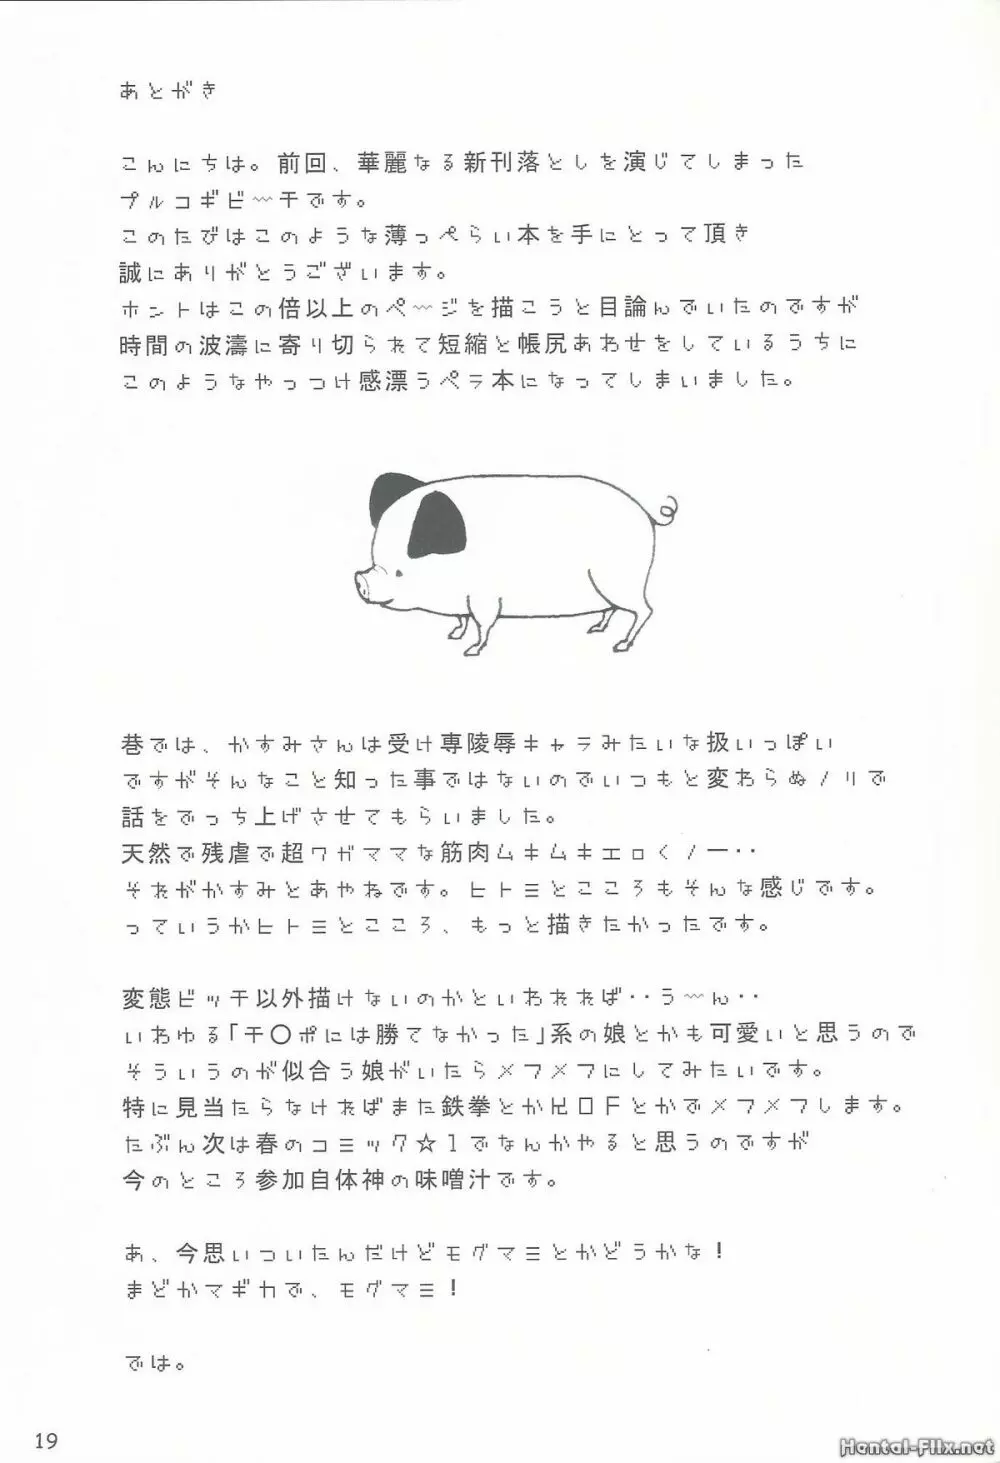 あとがき
こんにちは。前回、華麗なる新刊落としを演じてしまった
プルコギビ〜チです。
このたびはこのような薄っぺらい本を手にとって頂き
誠にありがとうございます。
ホントはこの倍以上のペ〜ジを描こうと目論んでいたのですが
時間の波濤に寄り切られて短縮と帳尻あわせをしているうちに
このようなやっつけ感漂うペラ本になってしまいました。
巷では、かすみさんは受け専陵辱キャラみたいな扱いっぽい
ですがそんなこと知った事ではないのでいつもと変わらぬノリで
話をでっち上げさせてもらいました。
天然で残虐で超ワガママな筋肉ムキムキエロくノ一‥
それがかすみとあやねです。ヒトミとこころもそんな感じです。
っていうかヒトミとこころ、もっと描きたかったです。
変態ビッチ以外描けないのかといわれれば‥う〜ん‥
いわゆる「チ〇ポには勝てなかった」系の娘とかも可愛いと思うので
そういうのが似合う娘がいたらメフメフにしてみたいです。
特に見当たらなければまた鉄拳とかKOFとかでメフメフします。
たぶん次は春のコミック☆1でなんかやると思うのですが
今のところ参加自体神の味噌汁です。
あ、今思いついたんだけどモグマミとかどうかな!
まどかマギカで、モグマミ!
では。
19
Hentai-FlIx.net